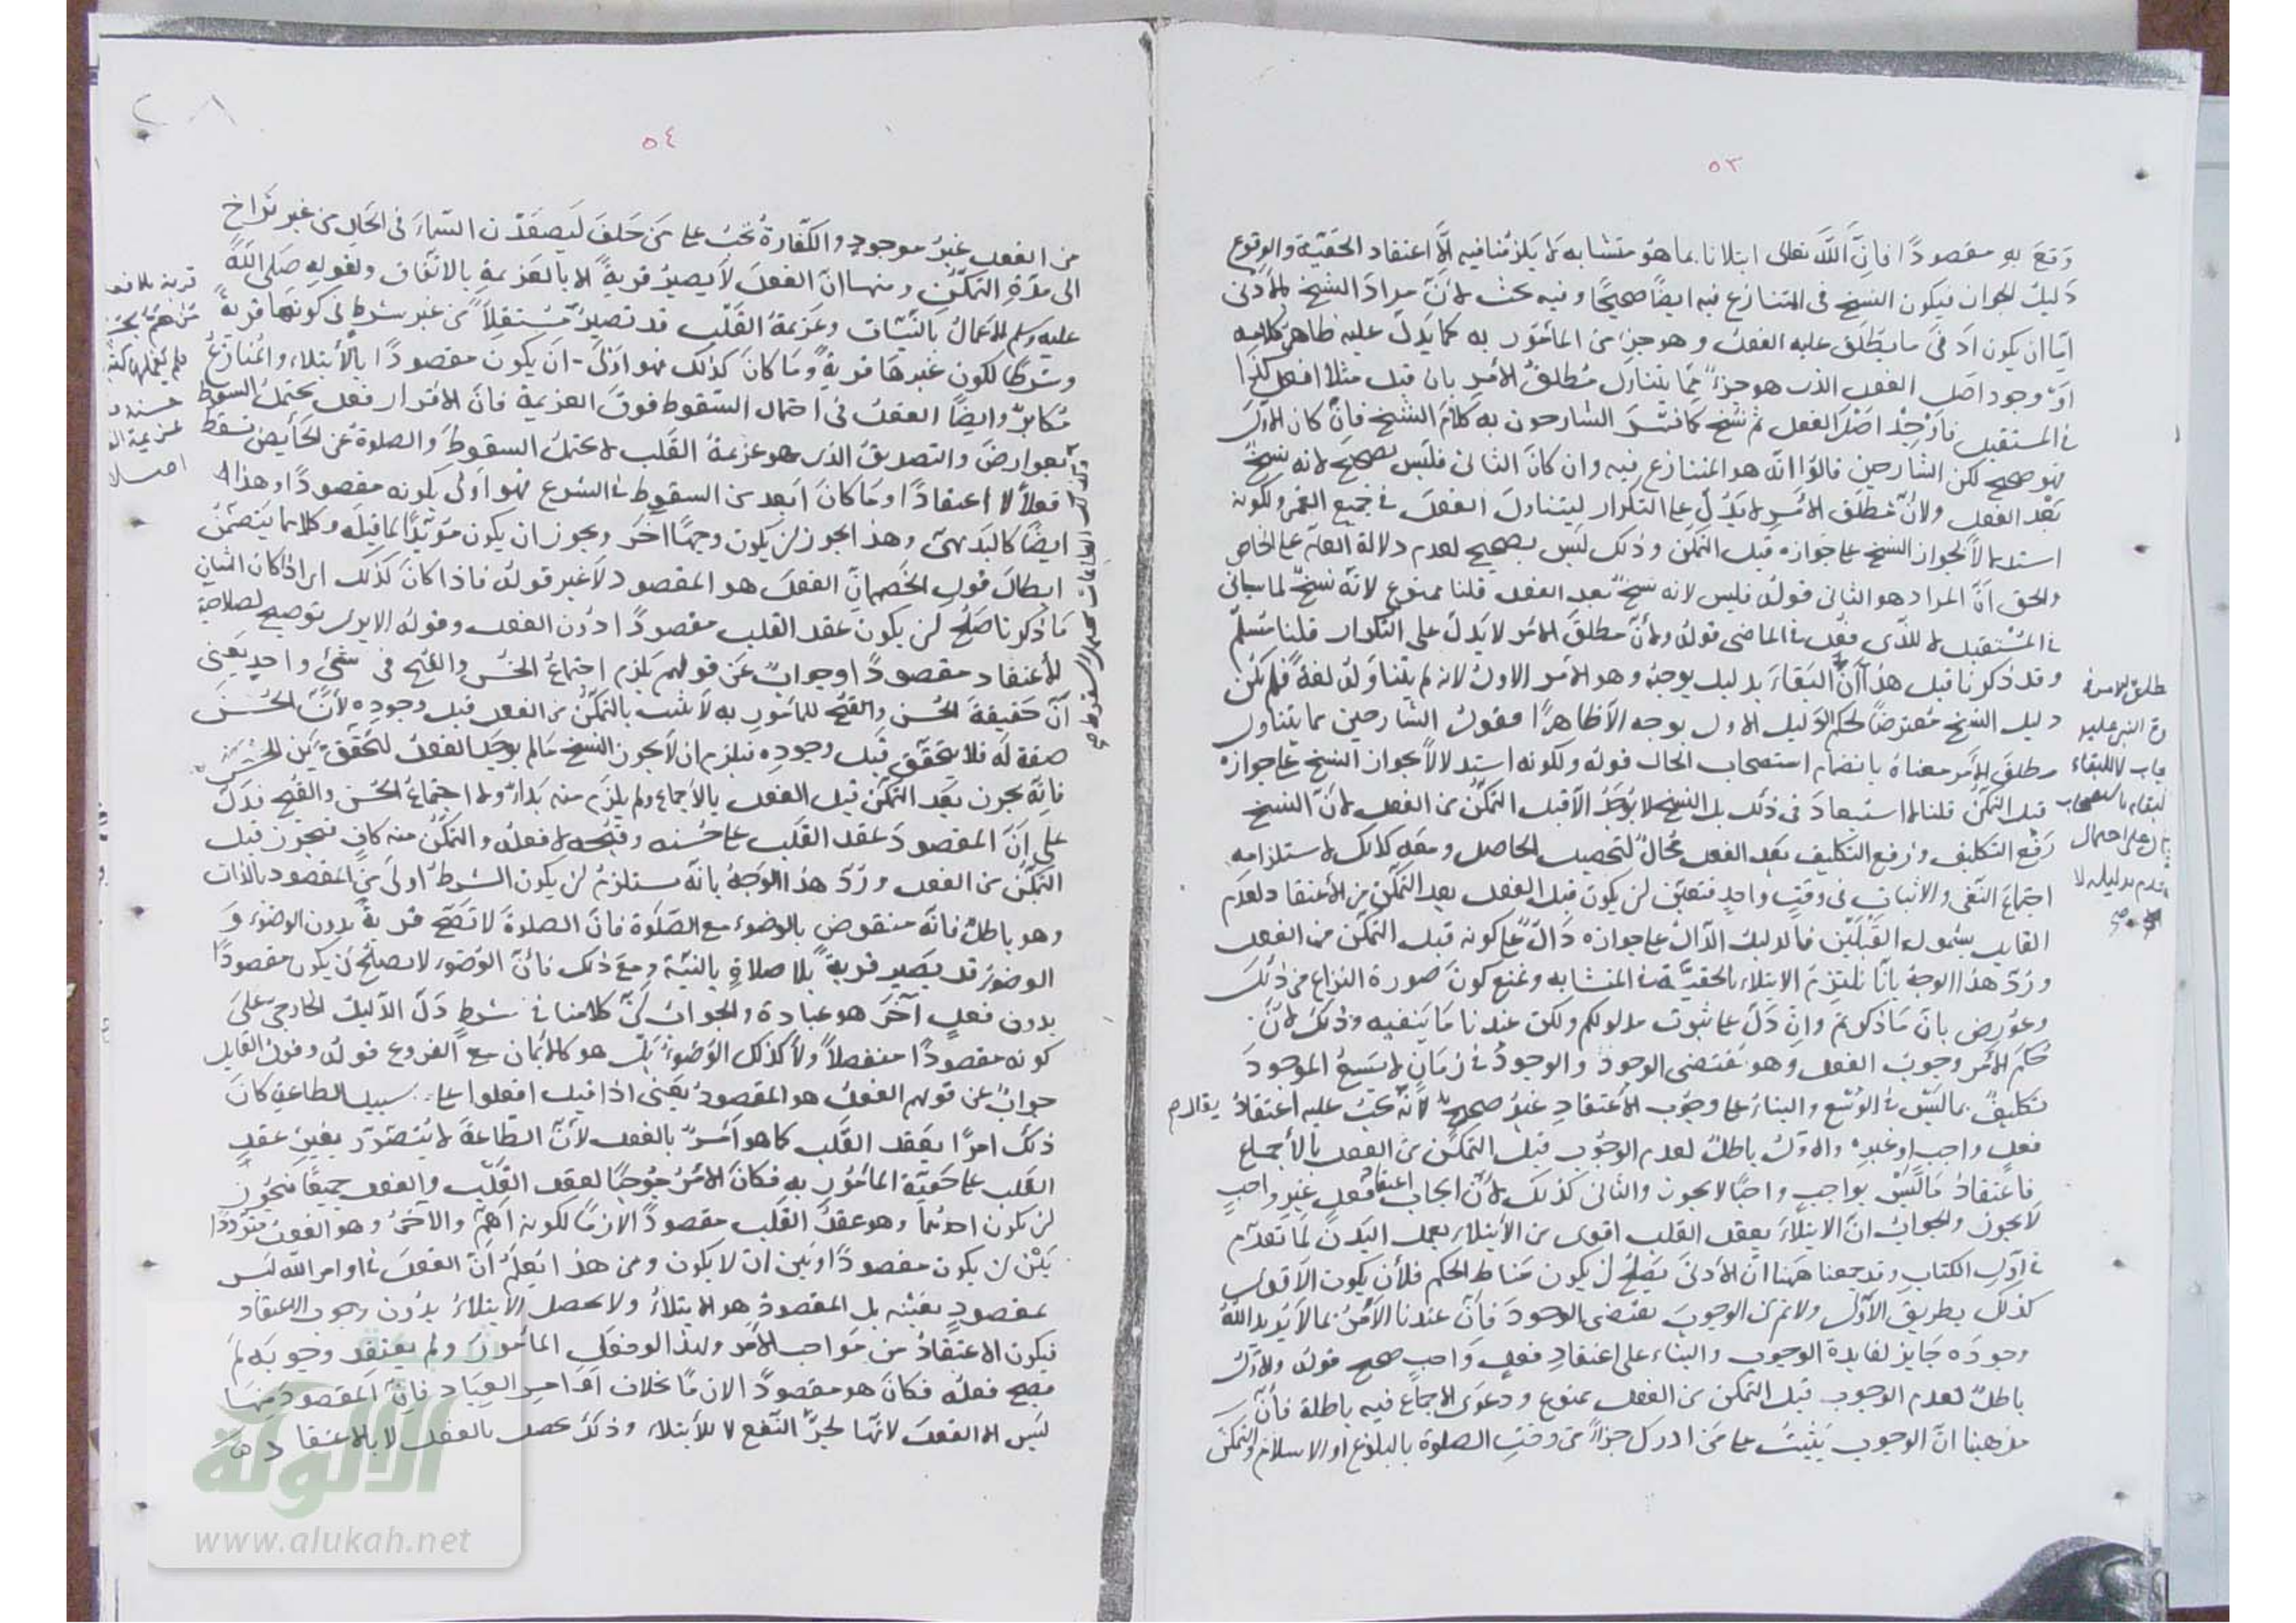 ٥٣
وقع به مقصودًا فانّ اللّه تعالى ابتلانا بما هو متشابه لا يلزمنا فيه إلّا اعتقاد الحقيّة والوقوع
دليل الجواز فيكون النسخ في المتنازع فيه ايضًا صحيحًا وفيه بحث لانّ مراد الشيخ بالادنى
امّا ان يكون ادنى ما يطلق عليه الفعل وهو جزء من المأمور به كما يدلّ عليه ظاهر كلامه
او وجود اصل الفعل الذى هو جزء ممّا يتناول مطلق الامر بان قيل مثلا افعل كذا
في المستقبل فاوجد اصل الفعل ثم نسخ كما فسّر الشارحون به كلام الشيخ فان كان الاول
فهو صحيح لكن الشارحين قالوا انّه هو المتنازع فيه وان كان الثانى فليس بصحيح لانه نسخ
بعد الفعل ولانّ مطلق الامر لا يدلّ على التكرار ليتناول الفعل في جميع العمر ولكونه
استدلالًا لجواز النسخ على جوازه قبل التمكن وذلك ليس بصحيح لعدم دلالة العام على الخاص
والحق انّ المراد هو الثانى قوله فليس لانه نسخ بعد الفعل قلنا ممنوع لانّه نسخ لما سيأتى
في المستقبل لا للذى فعل في الماضى قوله ولانّ مطلق الامر لا يدلّ على التكرار قلنا مسلّم
وقد ذكرنا قبل هذا انّ البقاء بدليل يوجبه وهو الامر الاول لانه لم يتناوله لغة فلم يكن
دليل النسخ معترضًا لحكم الدليل الاول بوجه الّا ظاهرًا فقول الشارحين بما يتناول
مطلق الامر معناه بانضمام استصحاب الحال قوله ولكونه استدلالًا بجواز النسخ على جوازه
قبل التمكن قلنا لا استبعاد في ذلك بل النسخ لا يوجد الّا قبل التمكن من الفعل لانّ النسخ
رفع التكليف ورفع التكليف بعد الفعل محال لتحصيل الحاصل ومعه كذلك لاستلزامه
اجتماع النفى والاثبات في وقت واحد فتعيّن ان يكون قبل الفعل بعد التمكن من الاعتقاد ولعدم
القايل بشمول القبلين فالدليل الدالّ على جوازه دالّ على كونه قبل التمكن من الفعل
وردّ هذا الوجه بانّا نلتزم الابتلاء بالحقيّة في المتشابه ونمنع كون صورة النزاع من ذلك
وعورض بانّ ما ذكرتم وان دلّ على ثبوت مدلولكم ولكن عندنا ما ينفيه وذلك لانّ
حكم الامر وجوب الفعل وهو يقتضى الوجود والوجود في زمان لا يسع الموجود
تكليف بما ليس في الوسع والبناء على وجوب الاعتقاد غير صحيح لانّه يجب عليه اعتقاد
فعل واجب او غيره والاول باطل لعدم الوجوب قبل التمكن من الفعل بالاجماع
فاعتقاد ما ليس بواجب واجبًا لا يجوز والثانى كذلك لانّ ايجاب اعتقاد فعل غير واجب
لا يجوز والجواب انّ الابتلاء بعقد القلب اقوى من الابتلاء بعمل البدن لما تقدّم
في اوّل الكتاب وقد جمعنا ههنا انّ الادنى يصلح ان يكون مناط الحكم فلأن يكون الاقوى
كذلك بطريق الاولى ولا نم انّ الوجوب يقتضى الوجود فانّ عندنا الامر بما لا يريد اللّه
وجوده جايز لفايدة الوجوب والبناء على اعتقاد فعل واجب صحيح قوله والاول
باطل لعدم الوجوب قبل التمكن من الفعل ممنوع ودعوى الاجماع فيه باطلة فانّ
مذهبنا انّ الوجوب يثبت على من ادرك جزءًا من وقت الصلوة بالبلوغ او الاسلام والتمكن
٥٤
من الفعل غير موجود والكفّارة تجب على من حلف ليصعدنّ السّماء في الحال من غير تراخ
الى مدّة التمكن ومنها انّ الفعل لا يصير قربةً الا بالعزيمة بالاتّفاق ولقوله صلى اللّه
عليه وسلم الاعمال بالنّيّات وعزيمة القلب قد تصير مستقلًا من غير شرط في كونها قربةً
وشرطًا لكون غيرها قربةً وما كان كذلك فهو اولى ان يكون مقصودًا بالابتلاء والمنازع
مكابر وايضًا الفعل في احتمال السّقوط فوق العزيمة فانّ الاقرار فعل يحتمل السقوط
بعوارض والتصديق الذى هو عزيمة القلب لا يحتمل السقوط والصلوة عن الحايض تسقط
فعلًا لا اعتقادًا وما كان ابعد من السقوط في الشرع فهو اولى بكونه مقصودًا وهذا
ايضًا كالبديهى وهذا يجوز ان يكون وجهًا اخر ويجوز ان يكون مؤيّدًا لما قبله وكلاهما يتضمّن
ابطال قول الخصم انّ الفعل هو المقصود لا غير قوله فاذا كان كذلك اى اذا كان الشان
ما ذكرنا صلح ان يكون عقد القلب مقصودًا دون الفعل وقوله الا يرى توضيح لصلاحية
الاعتقاد مقصودًا وجواب عن قولهم يلزم اجتماع الحسن والقبح في شئ واحد يعنى
انّ حقيقة الحسن والقبح للمأمور به لا تثبت بالتمكن من الفعل قبل وجوده لأنّ الحسن
صفة له فلا يتحقق قبل وجوده فيلزم ان لا يجوز النسخ ما لم يوجد الفعل لتحقّق عين الحسن
فانّه يجوز بعد التمكن قبل الفعل بالاجماع ولم يلزم منه بداء ولا اجتماع الحسن والقبح فدلّ
على انّ المقصود عقد القلب على حسنه وقبحه لا فعله والتمكن منه كاف فيجوز قبل
التمكن من الفعل وردّ هذا الوجه بانّه يستلزم ان يكون الشرط اولى من المقصود بالذات
وهو باطل فانّه منقوض بالوضوء مع الصّلوة فانّ الصلوة لا تصحّ قربةً بدون الوضوء و
الوضوء قد يصير قربةً بلا صلاة بالنيّة ومع ذلك فانّ الوضوء لا يصلح ان يكون مقصودًا
بدون فعل آخر هو عبادة والجواب انّ كلامنا في شرط دلّ الدّليل الخارجى على
كونه مقصودًا منفصلًا ولا كذلك الوضوء بل هو كالايمان مع الفروع قوله وقول القايل
جواب عن قولهم الفعل هو المقصود يعنى اذا قيل افعلوا على سبيل الطاعة كان
ذلك امرًا بعقد القلب كما هو امر بالفعل لأنّ الطّاعة لا يتصوّر بغير عقد
القلب على حقيّة المأمور به فكان الامر موجبًا لعقد القلب والفعل جميعًا فيجوز
ان يكون احدهما وهو عقد القلب مقصودًا لازمًا لكونه اهمّ والآخر وهو الفعل متردّدًا
بين ان يكون مقصودًا وبين ان لا يكون ومن هذا يعلم انّ الفعل في اوامر اللّه ليس
بمقصود بعينه بل المقصود هو الابتلاء ولا يحصل الابتلاء بدون وجوب الاعتقاد
فيكون الاعتقاد من مواجب الامر ولهذا لو فعل المأمور ولم يعتقد وجوبه لم
يصح فعله فكان هو مقصودًا لازمًا بخلاف اوامر العباد فانّ المقصود منها
ليس الا الفعل لانّها لجرّ النّفع لا للأبتلاء وذلك يحصل بالفعل لا بالاعتقاد
الألوكة
www.alukah.net